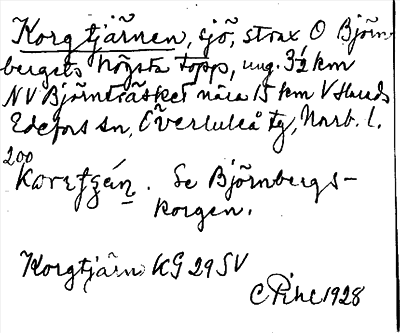 Korgtjärnen, sjö, strax O Björn
bergets högsta topp, ung. 3½ km
NV Björnträsket nära 15 km V Harads
Edefors sn, Överluleå tg, Norrb. l.
200
Se Björnbergs-
korgen.
Korgtjärn KG 29 SV
C Pihl 1928